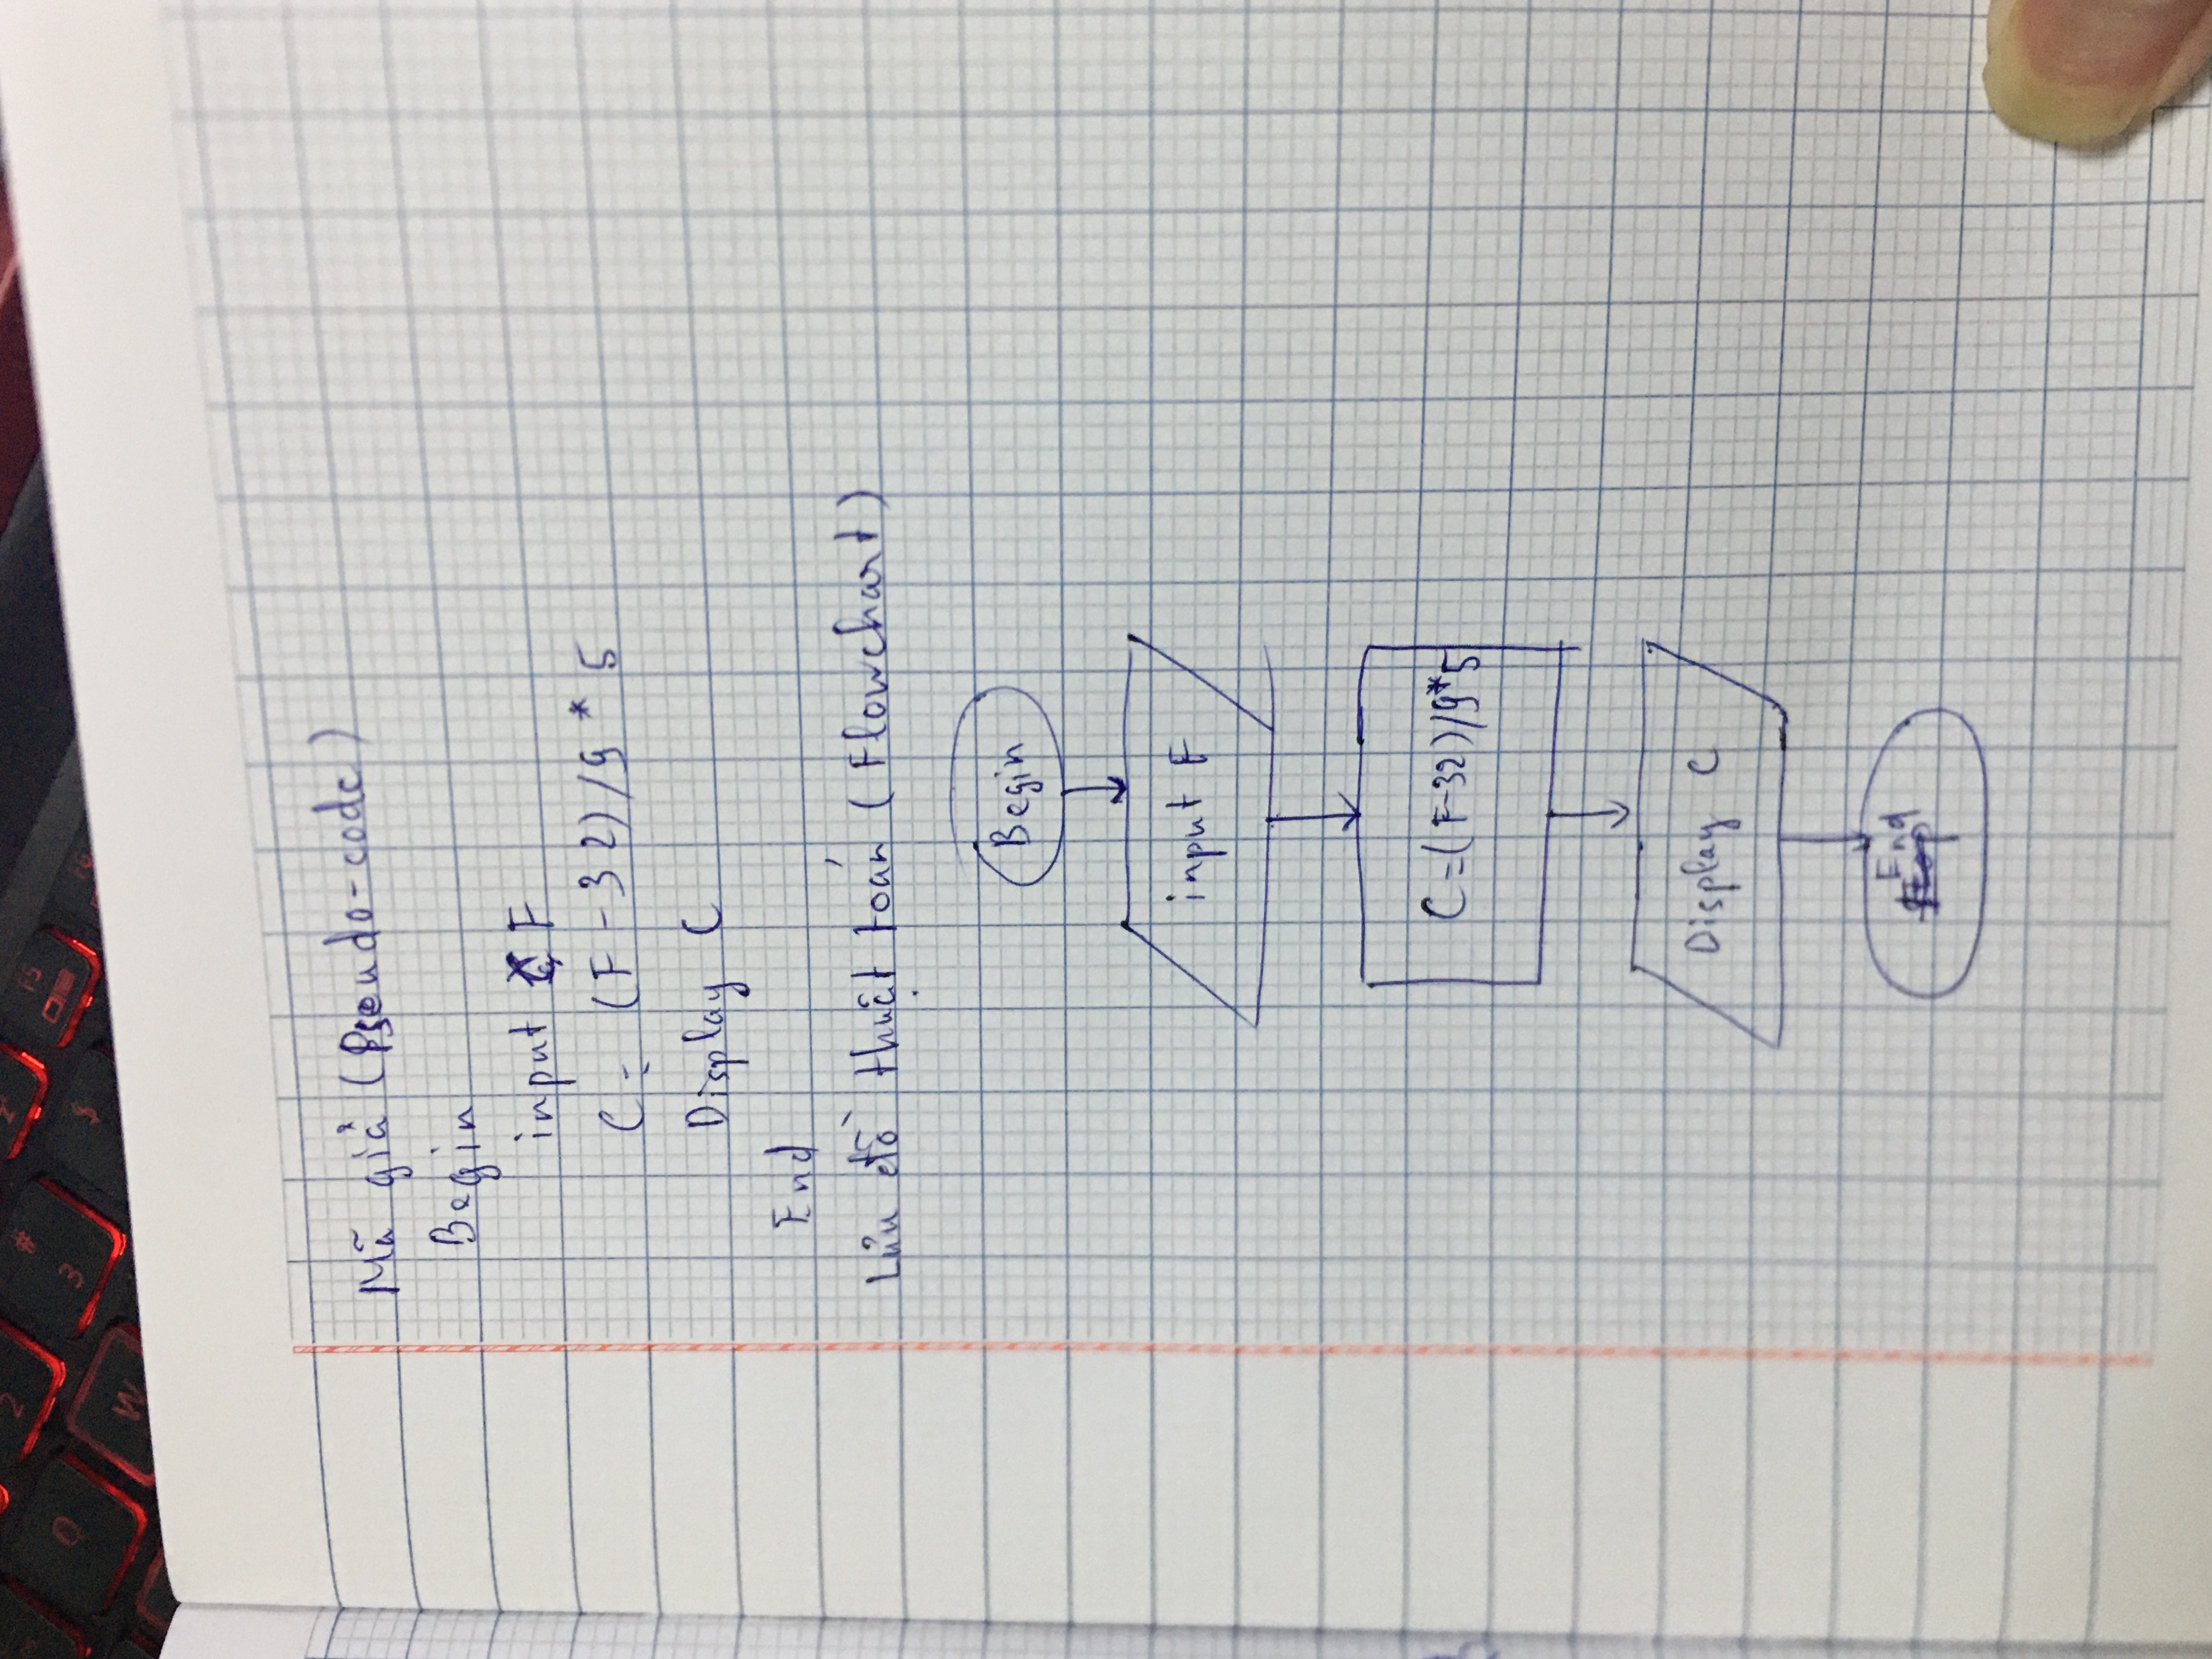 Mã giả (Pseudo-code)
Begin
input F
C = (F - 32) / 9 * 5
Display C
End
Lưu đồ thuật toán (Flowchart)
Begin
input F
C = (F-32)/9*5
Display C
End